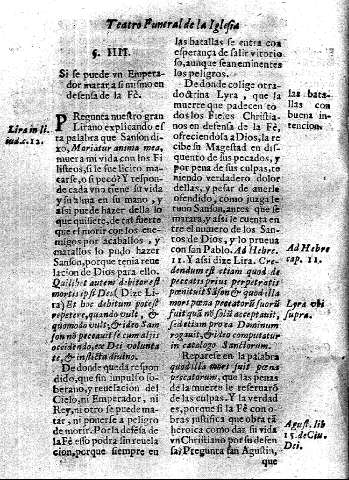 Teatro Funeral de la Iglesia
§. IIII.
Si se puede vn Empera-
dor matar a si mismo en
defensa de la Fè.
PRegunta nuestro gran
Lirano explicando es-
ta palabra que Sanson di-
xo, Moriatur anima mea,
muera mi vida con los Fi
listeos, si le fue licito ma-
tarse, o si pecò? Y respon-
de cada vno tiene su vida
y su alma en su mano, y
assi puede hazer della lo
que quisiere, de tal suerte
que el morir con los ene-
migos por acaballos, y
matallos lo pudo hazer
Sanson, porque tenia reue
lacion de Dios para ello.
Quilibet autem debitor est
mortis ipsi Deo (Dize Li-
ra) Et hoc debitum potest
repetere, quando vult, &
quomodo vult; & ideo Sam
son nõ peccauit se cum alijs
occidendo, ex Dei volunta
te, & instictu diuino.
De donde queda respon
dido, que sin impulso so-
berano, y reuelacion del
Cielo, ni Emperador, ni
Rey, ni otro se puede ma-
tar, ni ponerse a peligro
de morir. Por la defesa de
la Fè esso podra sin reuela
cion, porque siempre en
Lira in li.
iud. c. 12.
las batallas se entra con
esperança de salir vitorio
so, aunque sean eminentes
los peligros.
De donde colige otra
doctrina Lyra, que la
muerte que padecen to-
dos los Fieles Christia-
nos en defensa de la Fè,
ofreciendola a Dios, la re
cibe su Magestad en dis-
quento de sus pecados, y
por pena de sus culpas, te
niendo verdadero dolor
dellas, y pesar de auerle
ofendido, como juzga le
tuuo Sanson, antes que se
matara, y assi le cuenta en
tre el numero de los San-
tos de Dios, y lo prueua
con san Pablo. Ad Hebre.
11. Y assi dize Lira. Cre-
dendum est etiam quod de
peccatis prius perpetratis
pœnituit Sãson & quod illa
mors pœna peccatorũ suorũ
fuit quã nõ solũ acceptauit,
sed etiam prona Dominum
rogauit, & ideo computatur
in catalogo Sanctorum.
Reparese en la palabra
quod illa mors fuit pœna
peccatorum, que las penas
de la muerte le reserua-
das de las culpas. Y la verdad
es, porque si la Fè con o-
bras justifica que obra tã
heroica como dar su vida
vn Christiano por su defen
sa? Pregunta san Agustin,
que
las bata-
llas con
buena in-
tencion.
Ad Hebre
cap. 11.
Lyra vbi
supra.
Agust. lib
15. de Ciu.
Dei.